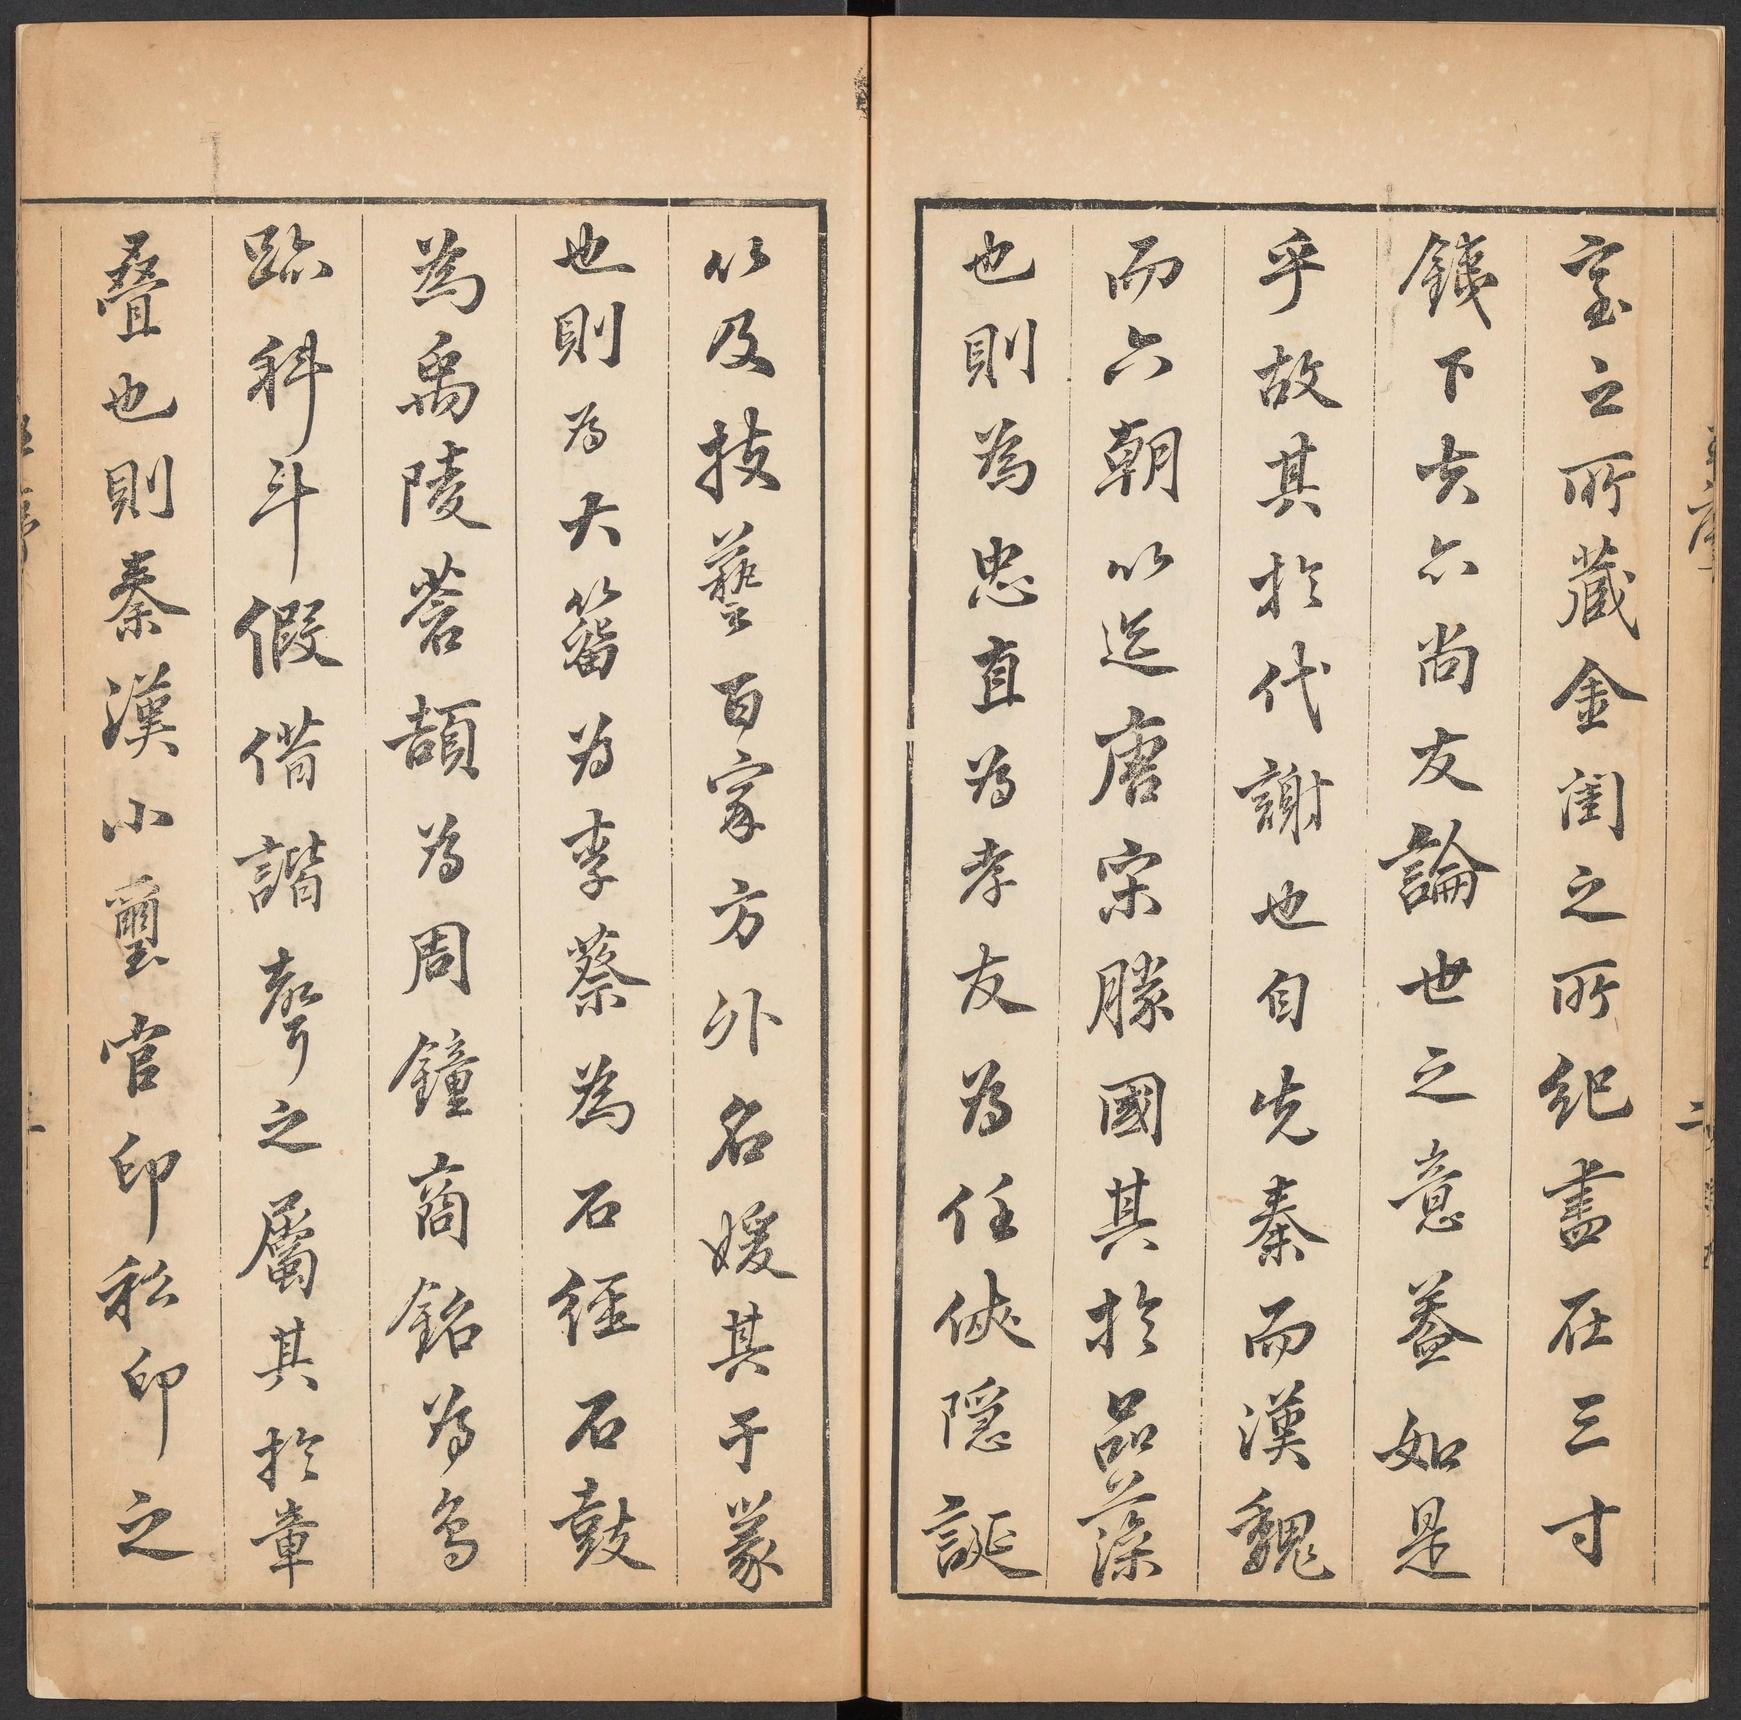 室之所藏金閨之所紀盡在三寸
鐵下矣亦尚友論世之意蓋如是
乎故其於代謝也自先秦而漢魏
而六朝以迄唐宋勝國其於品藻
也則為忠直為孝友為任俠隱誕
以及技藝百家方外名媛其于篆
也則為大籀為李蔡為石經石鼓
為禹陵蒼頡為周鐘商銘為鳥
跡科斗假借諧聲之屬其於章
疊也則秦漢小璽官印私印之
二